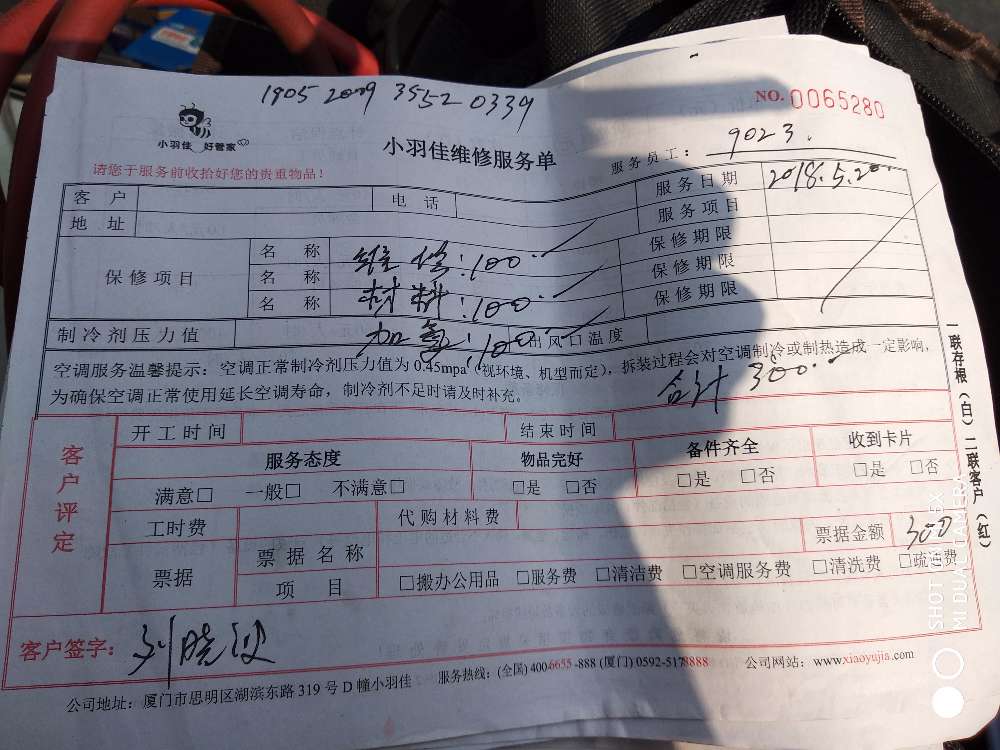 1905 2009 3552 0339
NO. 0065280
小羽佳 好管家
小羽佳维修服务单
服务员工： 9023.
请您于服务前收拾好您的贵重物品！
客 户 电 话 服务日期 2018.5.20
地 址 服务项目
保修项目 名 称 维修:100 保修期限
名 称 材料:100 保修期限
名 称 保修期限
制冷剂压力值 加氟:100 出风口温度
空调服务温馨提示：空调正常制冷剂压力值为 0.45mpa（视环境、机型而定），拆装过程会对空调制冷或制热造成一定影响，
为确保空调正常使用延长空调寿命，制冷剂不足时请及时补充。
合计 300
客户评定
开工时间 结束时间
服务态度 物品完好 备件齐全 收到卡片
满意□ 一般□ 不满意□ □是 □否 □是 □否 □是 □否
工时费 代购材料费
票据 票据名称 票据金额 300
项 目 □搬办公用品 □服务费 □清洁费 □空调服务费 □清洗费 □疏通费
客户签字：
公司地址：厦门市思明区湖滨东路 319 号 D 幢小羽佳 服务热线：(全国) 4006655-888 (厦门) 0592-5178888 公司网站：www.xiaoyujia.com
一联存根（白）二联客户（红）
SHOT ON MI 6X
MI DUAL CAMERA